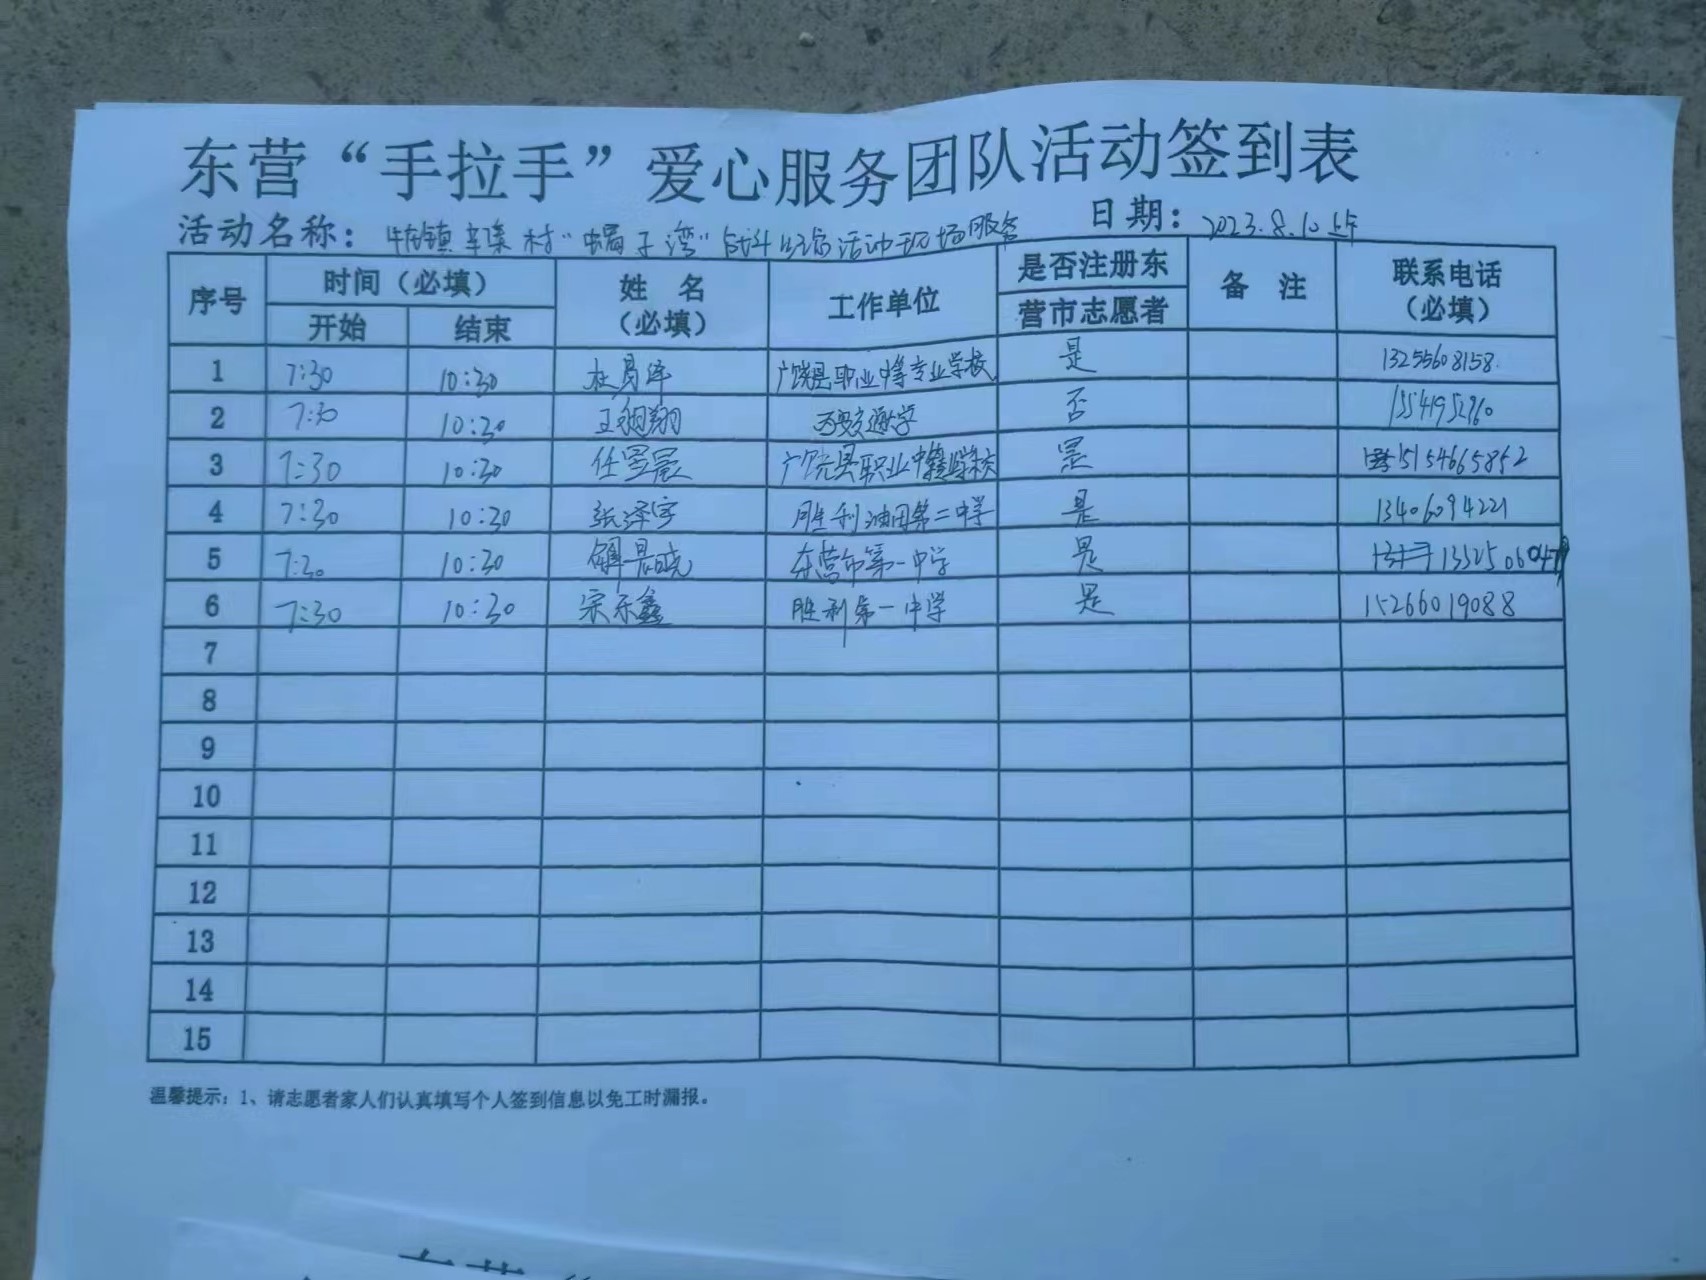 东营“手拉手”爱心服务团队活动签到表
活动名称： 牛庄镇 村“蝎子湾” 活动现场服务 日期：2023.8.10 上午
序号 时间（必填） 姓 名（必填） 工作单位 是否注册东营市志愿者 备 注 联系电话（必填）
开始 结束
1 7:30 10:30 广饶县职业中等专业学校 是 13255608158
2 7:30 10:30 王翔翔 西安交通大学 否
3 7:30 10:30 任昱晨 广饶县职业中等专业学校 是 15154665852
4 7:30 10:30 张泽宇 胜利油田第二中学 是 13406094221
5 7:30 10:30 晨晓 东营市第一中学 是
6 7:30 10:30 宋乐鑫 胜利第一中学 是 15266019088
7
8
9
10
11
12
13
14
15
温馨提示：1、请志愿者家人们认真填写个人签到信息以免工时漏报。